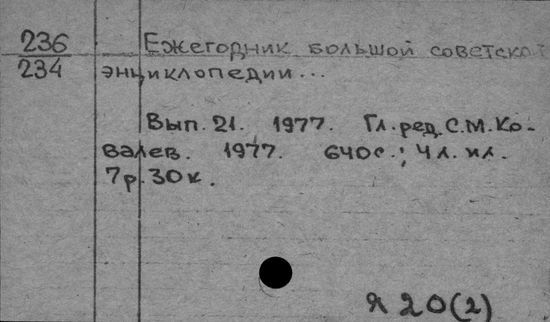 236
234
Ежегодник большой советской
энциклопедии...
Вып. 21. 1977. Гл. ред. С.М. Ко-
валев. 1977. 640с.; 4 л. ил.
7р. 30к.
Я 20(2)